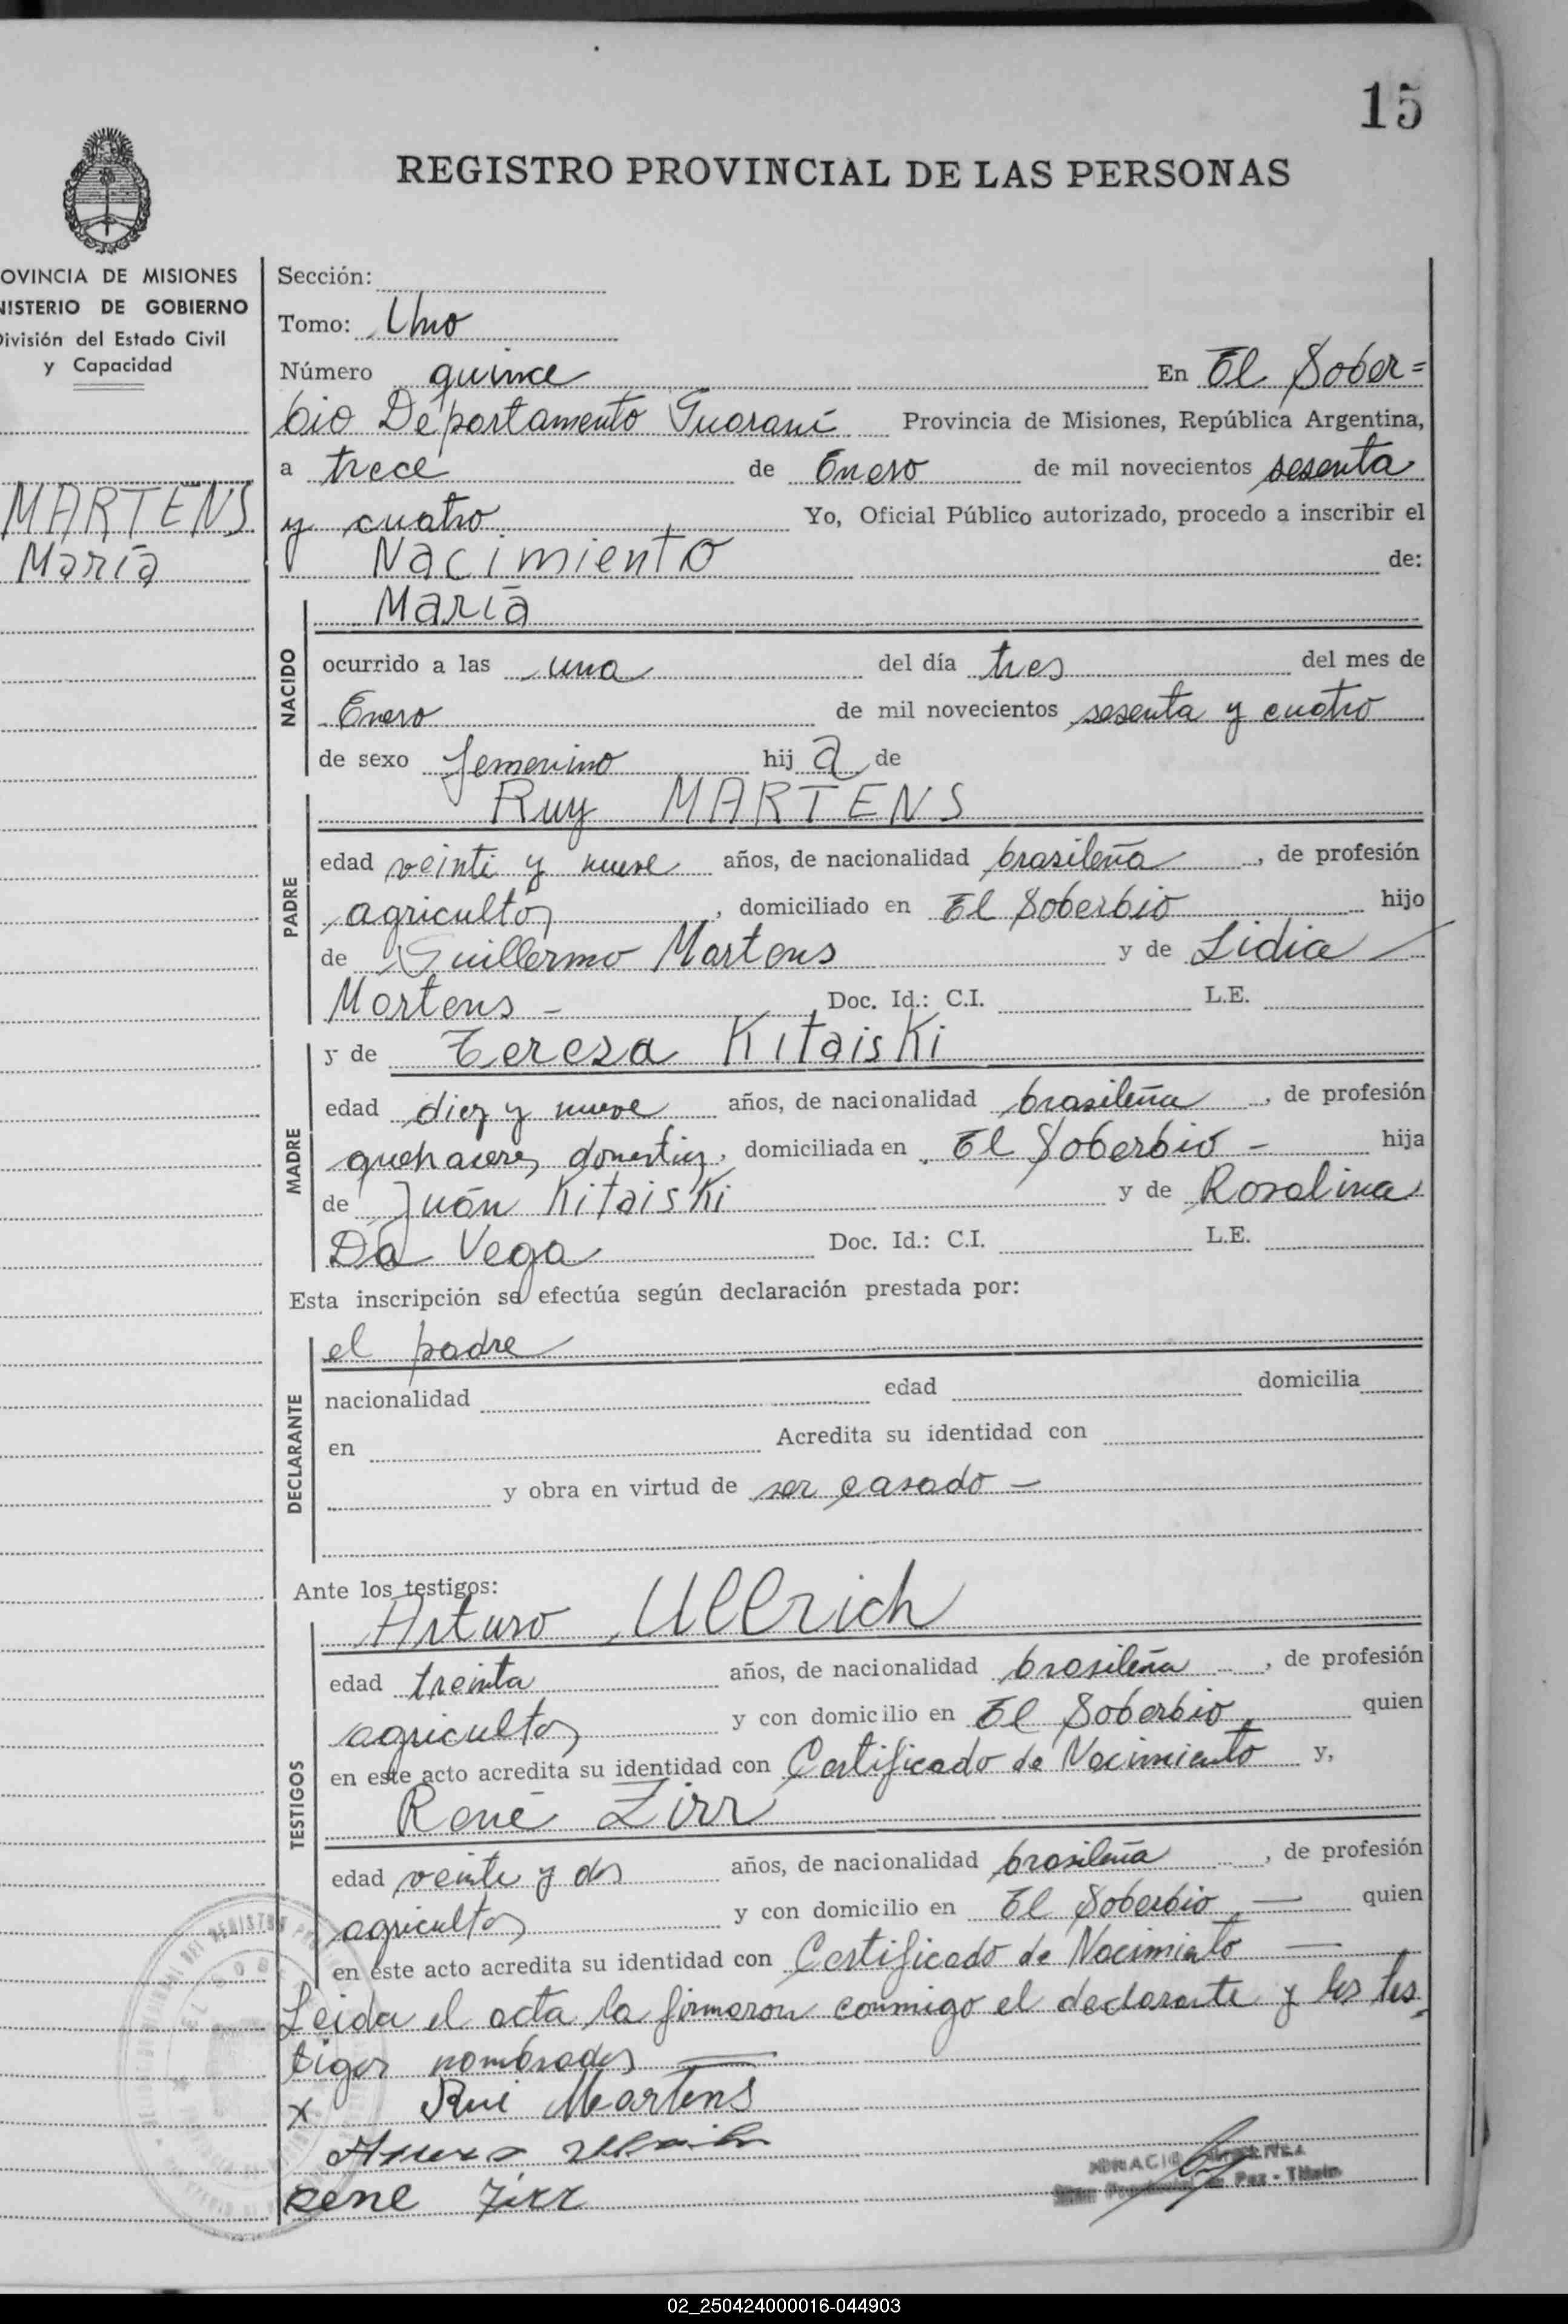 15
REGISTRO PROVINCIAL DE LAS PERSONAS
OVINCIA DE MISIONES
NISTERIO DE GOBIERNO
División del Estado Civil
y Capacidad
MARTENS
María
Sección:
Tomo: Uno
Número quince En El Sober=
bio Departamento Guaraní Provincia de Misiones, República Argentina,
a trece de Enero de mil novecientos sesenta
y cuatro Yo, Oficial Público autorizado, procedo a inscribir el
Nacimiento de:
NACIDO
María
ocurrido a las una del día tres del mes de
Enero de mil novecientos sesenta y cuatro
de sexo femenino hij a de
PADRE
Ruy MARTENS
edad veinti y nueve años, de nacionalidad brasileña, de profesión
agricultor, domiciliado en El Soberbio hijo
de Guillermo Martens y de Lidia
Martens - Doc. Id.: C.I. L.E.
MADRE
y de Tereza Kitaiski
edad diez y nueve años, de nacionalidad brasileña, de profesión
quehaceres domestico, domiciliada en El Soberbio - hija
de Juán Kitaiski y de Rosalina
Da Vega Doc. Id.: C.I. L.E.
Esta inscripción se efectúa según declaración prestada por:
DECLARANTE
el padre
nacionalidad edad domicilia
en Acredita su identidad con
y obra en virtud de ser casado -
Ante los testigos:
TESTIGOS
Arturo Ullrich
edad treinta años, de nacionalidad brasileña, de profesión
agricultor y con domicilio en El Soberbio quien
en este acto acredita su identidad con Certificado de Nacimiento y,
René Zirr
edad veinte y dos años, de nacionalidad brasileña, de profesión
agricultor y con domicilio en El Soberbio — quien
en este acto acredita su identidad con Certificado de Nacimiento —
Leida el acta la firmaron conmigo el declarante y los tes=
tigos nombrados —
x Rui Martens
Rene Zirr
Paz - Titular
02_250424000016-044903